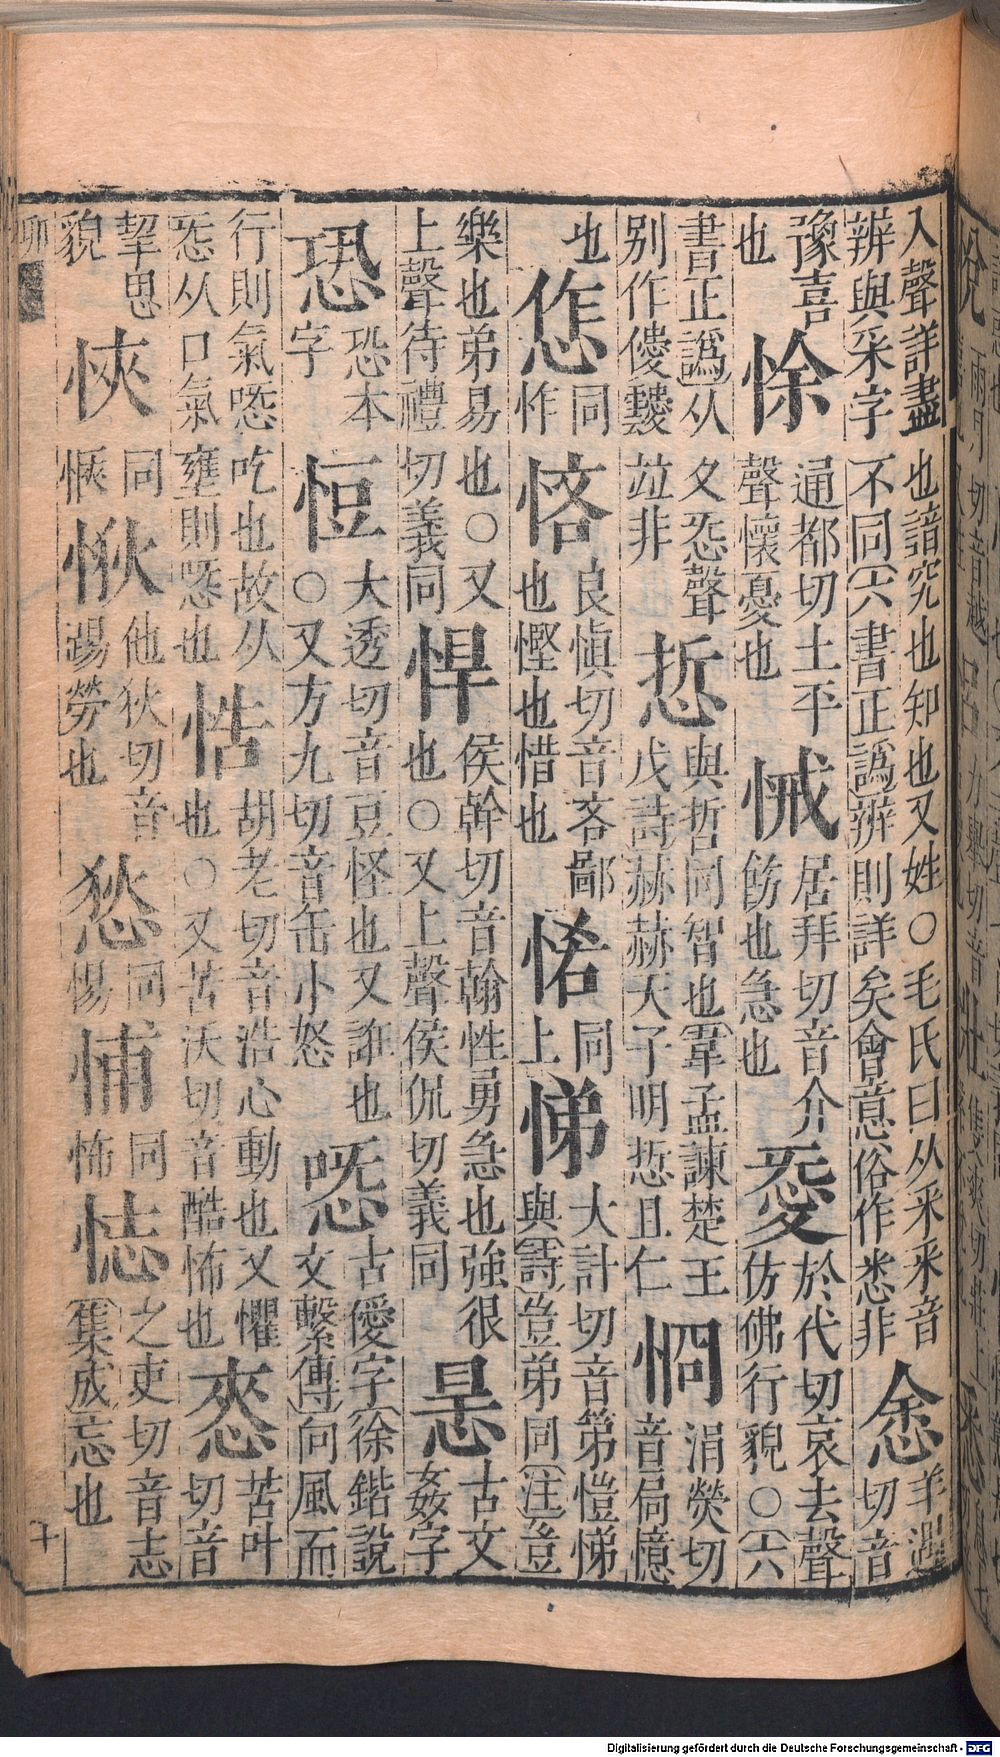 入聲詳盡也諳究也知也又姓○毛氏曰从釆釆音
辨與采字不同六書正譌辨則詳矣會意俗作悉非
悆
羊遇切音
豫喜也
悇
通都切土平聲懷憂也
悈
居拜切音介飭也急也
㤅
於代切哀去聲仿佛行貌○六
書正譌从夊㤅聲別作僾䨱竝非
悊
與哲同智也韋孟諫楚王戊詩赫赫天子明悊且仁
㤯
涓熒切音扃憶也
怎
同怍
悋
良愼切音吝鄙也慳也惜也
㤩
同上
悌
大計切音第愷悌與詩豈弟同注豈
樂也弟易也○又上聲待禮切義同
悍
侯幹切音翰性勇急也強很也○又上聲侯侃切義同
㫷
古文姦字
恐
恐本字
恒
大透切音豆怪也又誑也○又方九切音缶小怒
㤅
古僾字徐鍇說文繫傳向風而
行則氣㗒吃也故从㤅从口氣壅則㗒也
悎
胡老切音浩心動也又懼也○又苦沃切音酷怖也
㤲
苦叶切音
挈思貌
悏
同愜
悐
他狄切音踢勞也
愁
同惕
悑
同怖
㤽
之吏切音志集成忘也
十
Digitalisierung gefördert durch die Deutsche Forschungsgemeinschaft - DFG